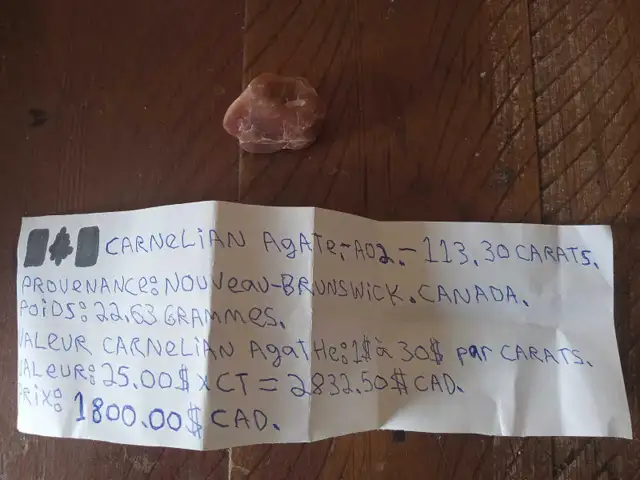 CARNELIAN AgATE,-A02.-113.30 CARATS.
PROVENANCE: NOUVEAU-BRUNSWICK. CANADA.
POIDS: 22.63 GRAMMES.
VALEUR CARNELIAN AgATHE: 1$ à 30$ par CARATS.
VALEUR: 25.00$ x CT = 2832.50$ CAD.
PRIX: 1800.00$ CAD.